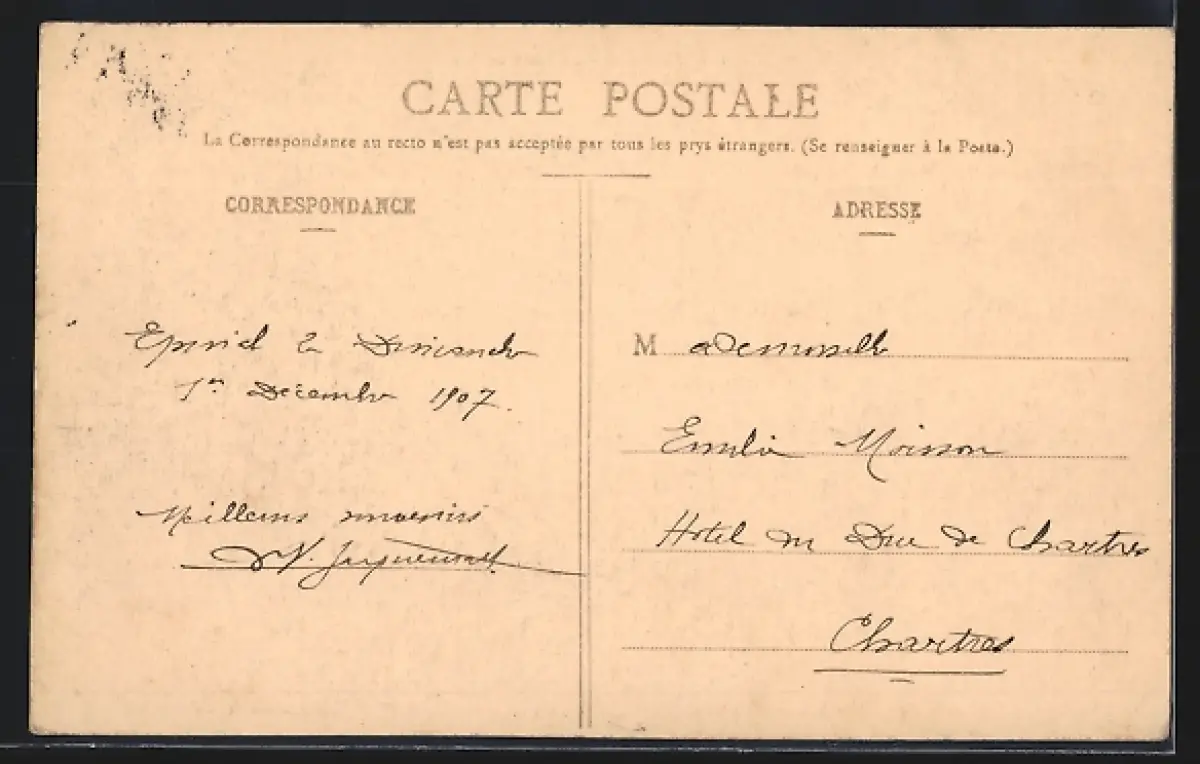 CARTE POSTALE
La Correspondance au recto n'est pas acceptée par tous les pays étrangers. (Se renseigner à la Poste.)
CORRESPONDANCE
ADRESSE
le Dimanche
1er Décembre 1907.
Meilleurs souvenirs
Mademoiselle
Emilie Moisson
Hôtel du Duc de Chartres
Chartres